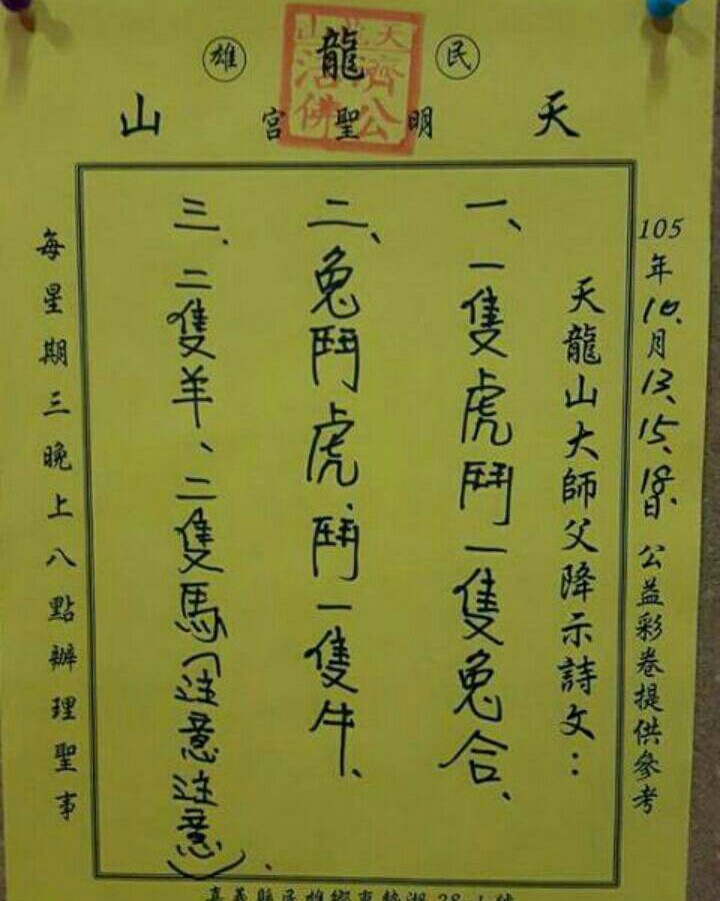 民 龍 雄
天 明聖宮 山
濟公活佛
105年10月13、15、18日 公益彩卷提供參考
天龍山大師父降示詩文：
一、一隻虎鬥一隻兔合、
二、兔鬥虎、鬥一隻牛、
三、二隻羊、二隻馬（注意注意）.
每星期三晚上八點辦理聖事